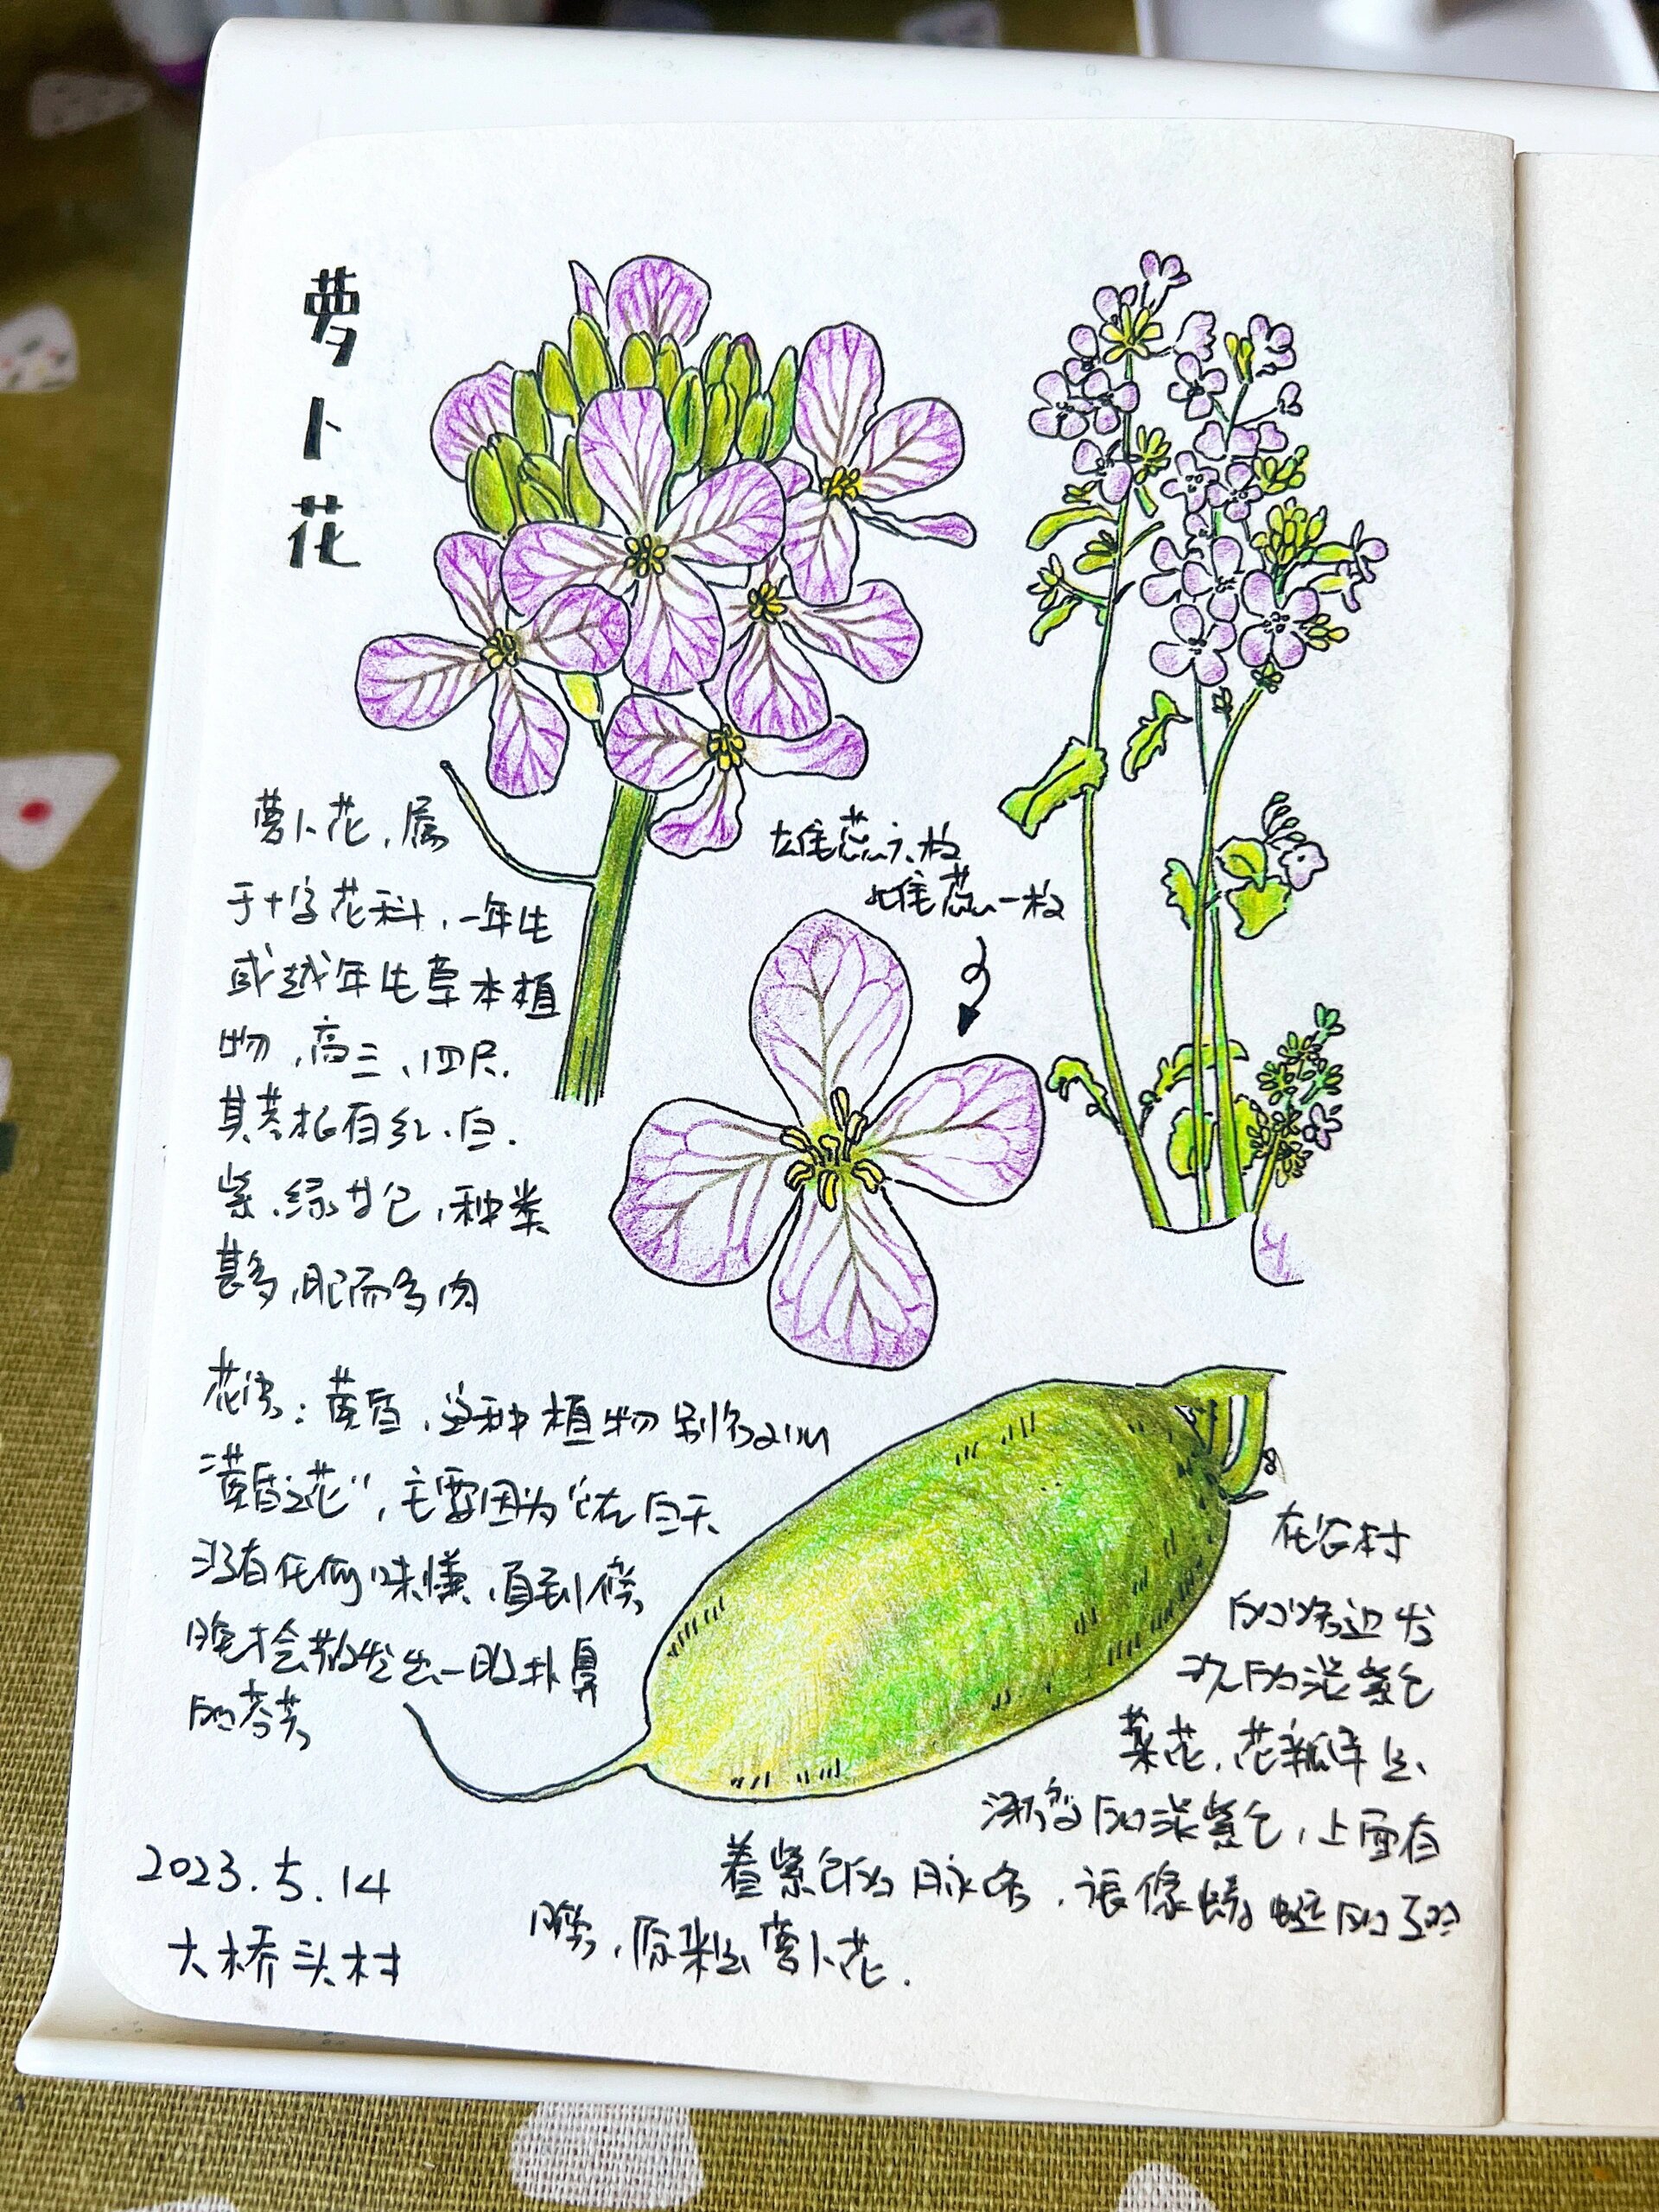 萝卜花
萝卜花，属
于十字花科，一年生
或越年生草本植
物，高三、四尺.
其花有红、白.
紫、绿等色，种类
甚多，肥而多肉
雄蕊六枚
雌蕊一枚
花语：黄昏，这种植物别名叫
“黄昏之花”，主要因为它在白天
没有任何味，直到傍
晚才会散发出一股扑鼻
的芳
在农村
的路边发
现的淡紫色
菜花，花瓣呈
渐变的淡紫色，上面有
着紫色的脉络，很像蜻蜓的
膀，原来是萝卜花.
2023.5.14
大桥头村